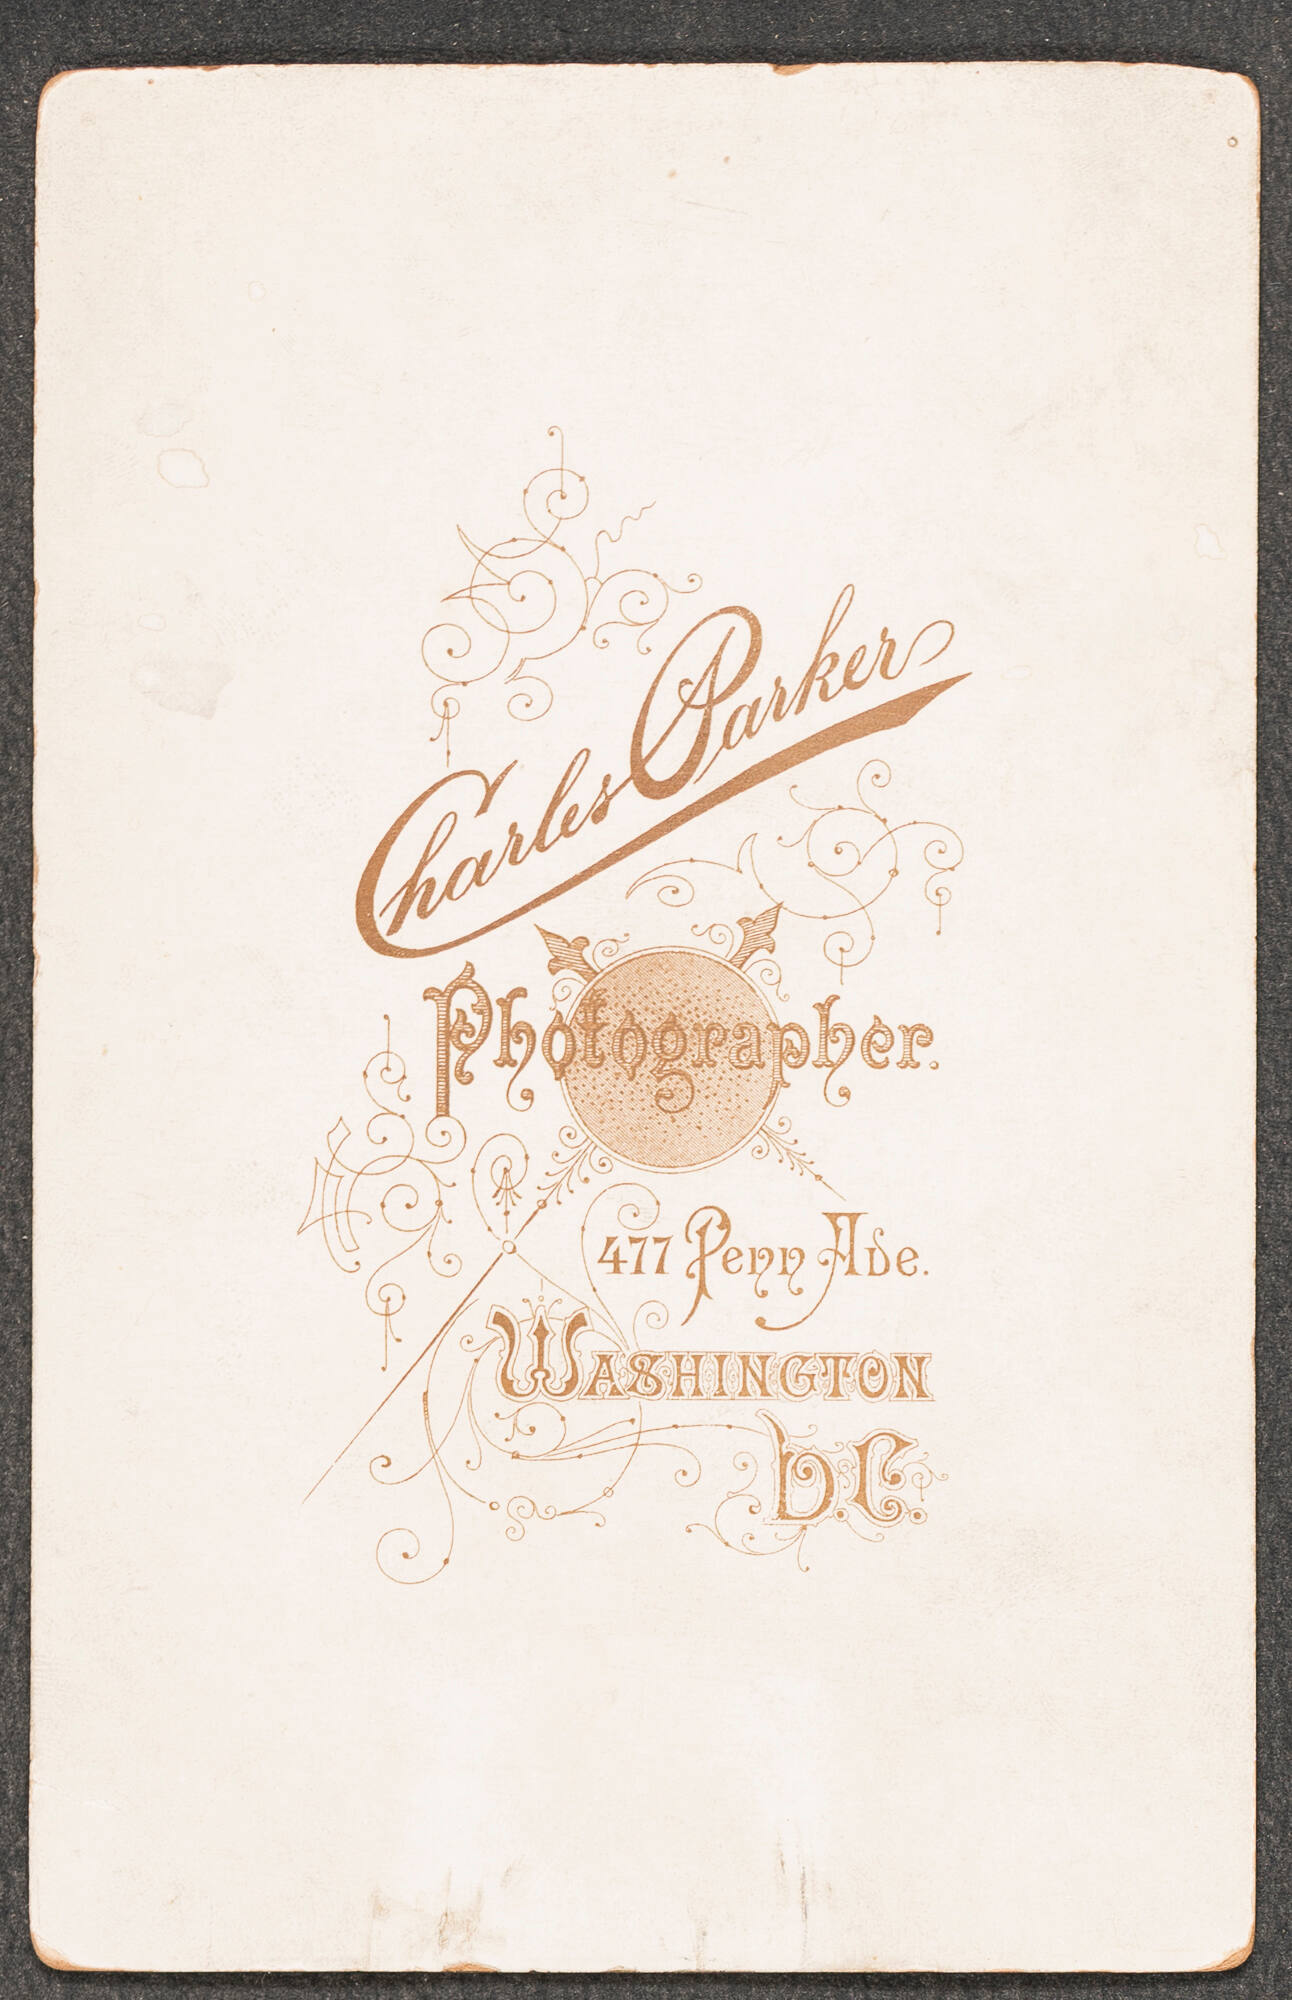 Charles Parker
Photographer.
477 Penn Ave.
WASHINGTON
D.C.